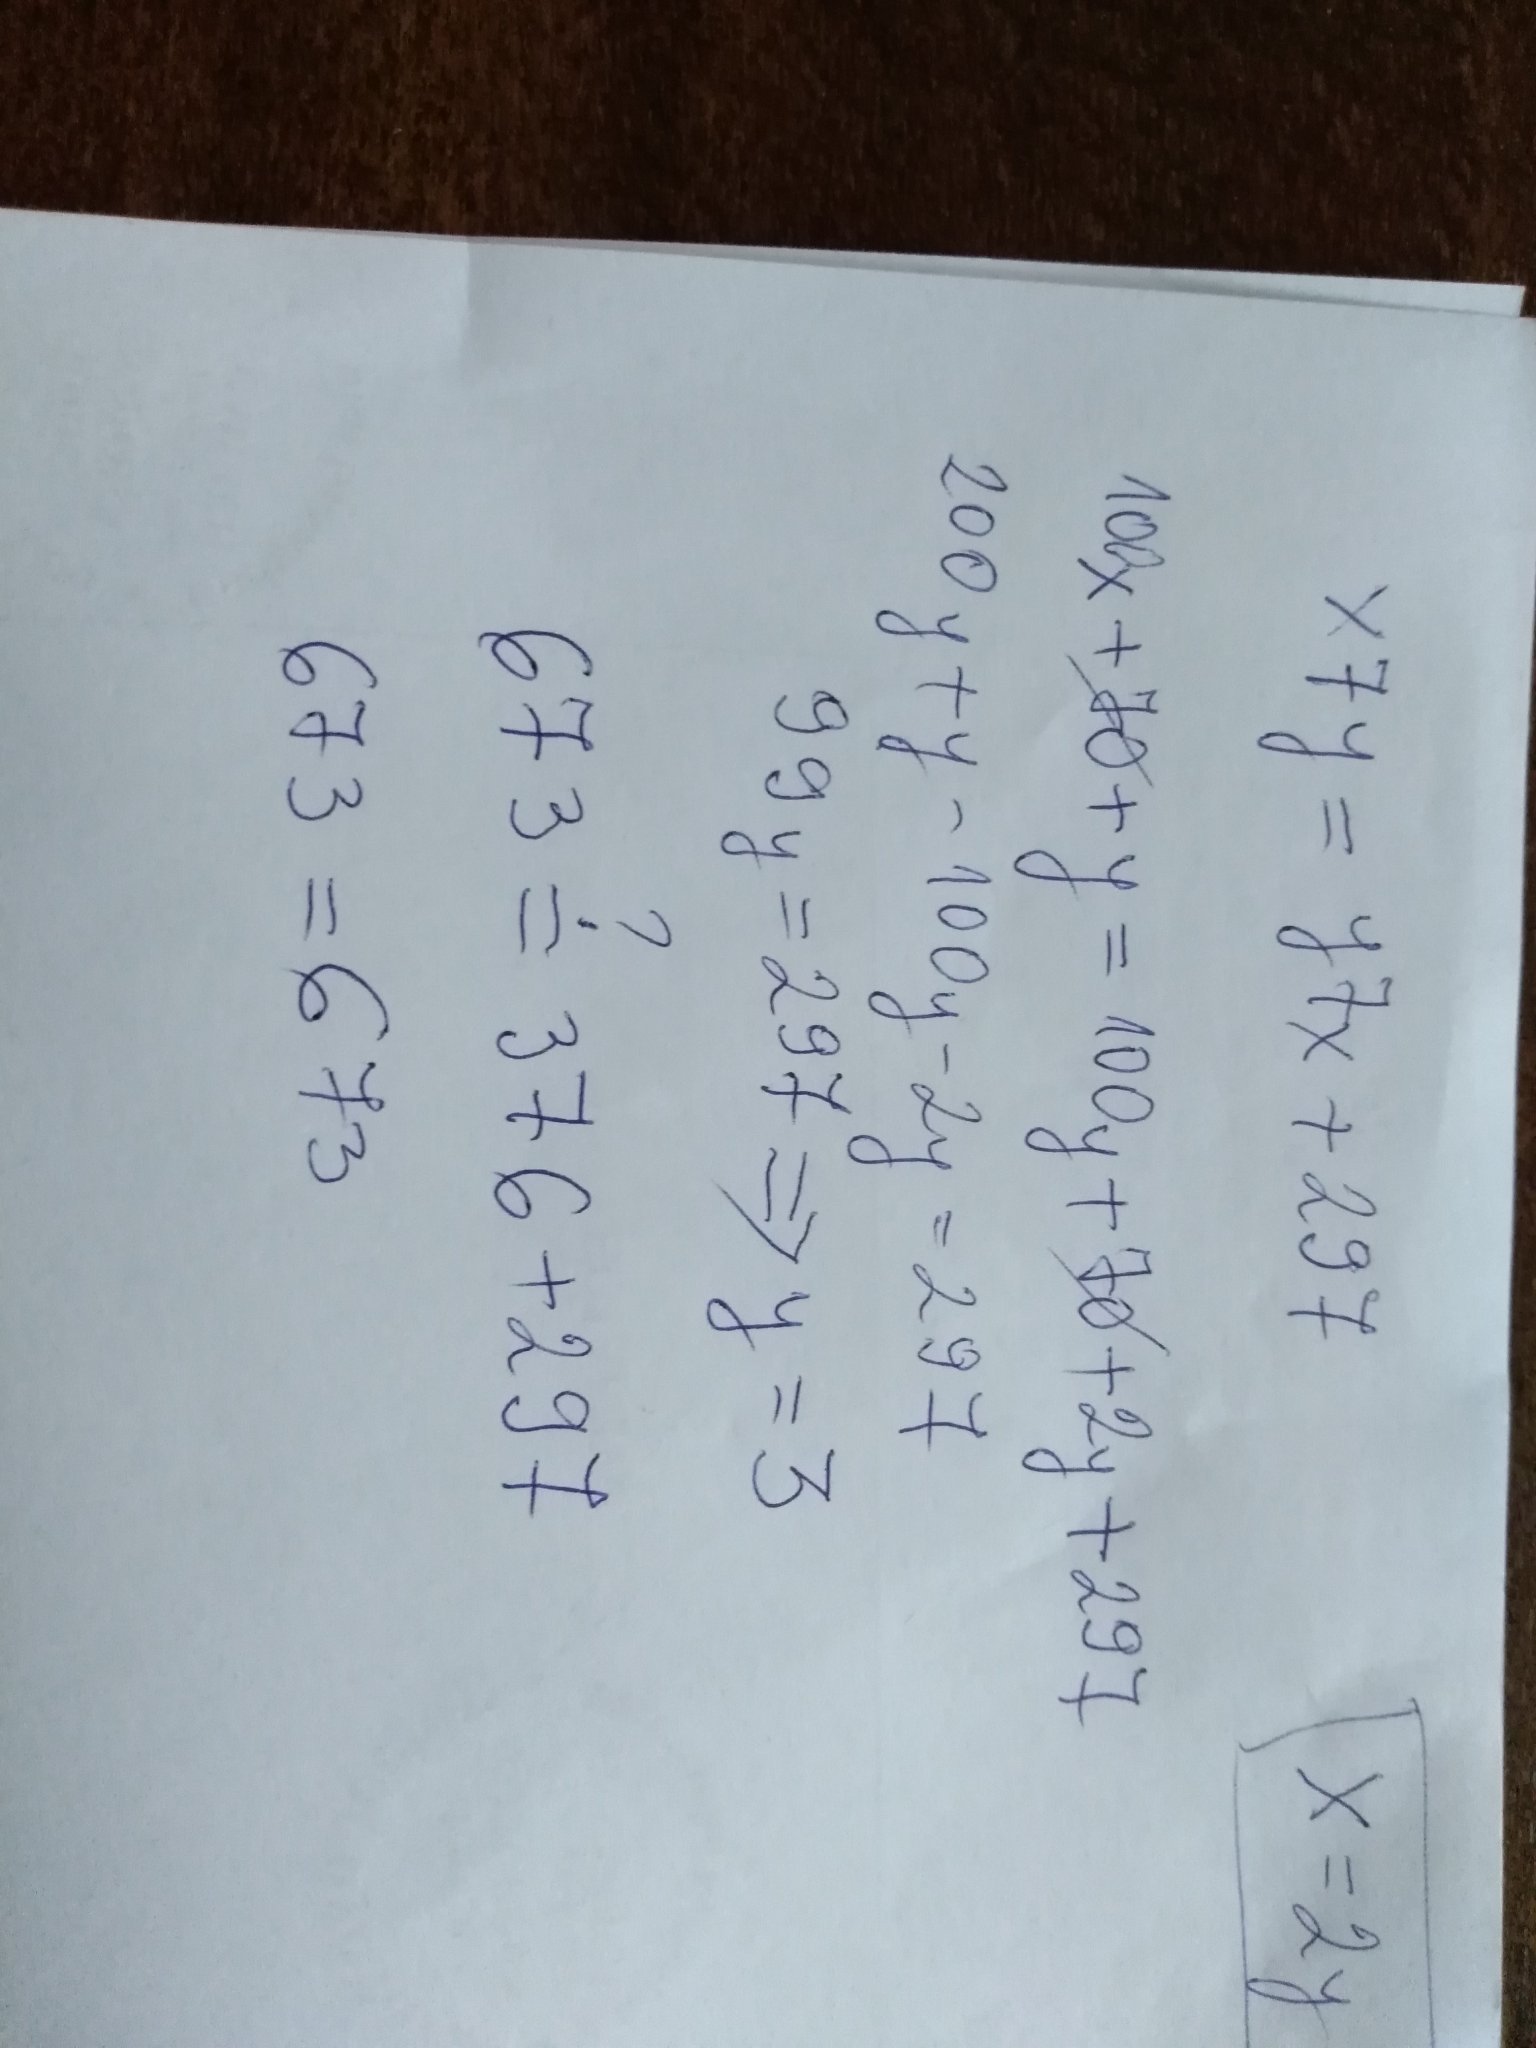 x7y = y7x + 297
x = 2y
100x + 70 + y = 100y + 70 + 2y + 297
200y + y - 100y - 2y = 297
99y = 297 ⇒ y = 3
?
673 = 376 + 297
673 = 673